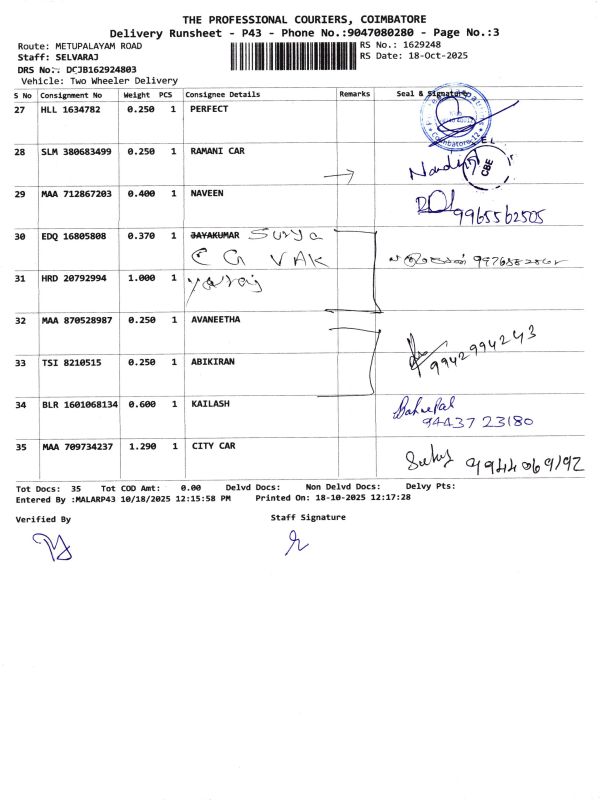 THE PROFESSIONAL COURIERS, COIMBATORE
Delivery Runsheet - P43 - Phone No.:9047080280 - Page No.:3
Route: METUPALAYAM ROAD RS No.: 1629248
Staff: SELVARAJ RS Date: 18-Oct-2025
DRS No.: DCJB162924803
Vehicle: Two Wheeler Delivery
S No Consignment No Weight PCS Consignee Details Remarks Seal & Signature
27 HLL 1634782 0.250 1 PERFECT
Coimbatore-12
28 SLM 380683499 0.250 1 RAMANI CAR
CBE
29 MAA 712867203 0.400 1 NAVEEN
9965562505
30 EDQ 16805808 0.370 1 JAYAKUMAR Surya
C G VAK
31 HRD 20792994 1.000 1
32 MAA 870528987 0.250 1 AVANEETHA
33 TSI 8210515 0.250 1 ABIKIRAN 9942994243
34 BLR 1601068134 0.600 1 KAILASH
94437 23180
35 MAA 709734237 1.290 1 CITY CAR
Tot Docs: 35 Tot COD Amt: 0.00 Delvd Docs: Non Delvd Docs: Delvy Pts:
Entered By :MALARP43 10/18/2025 12:15:58 PM Printed On: 18-10-2025 12:17:28
Verified By Staff Signature